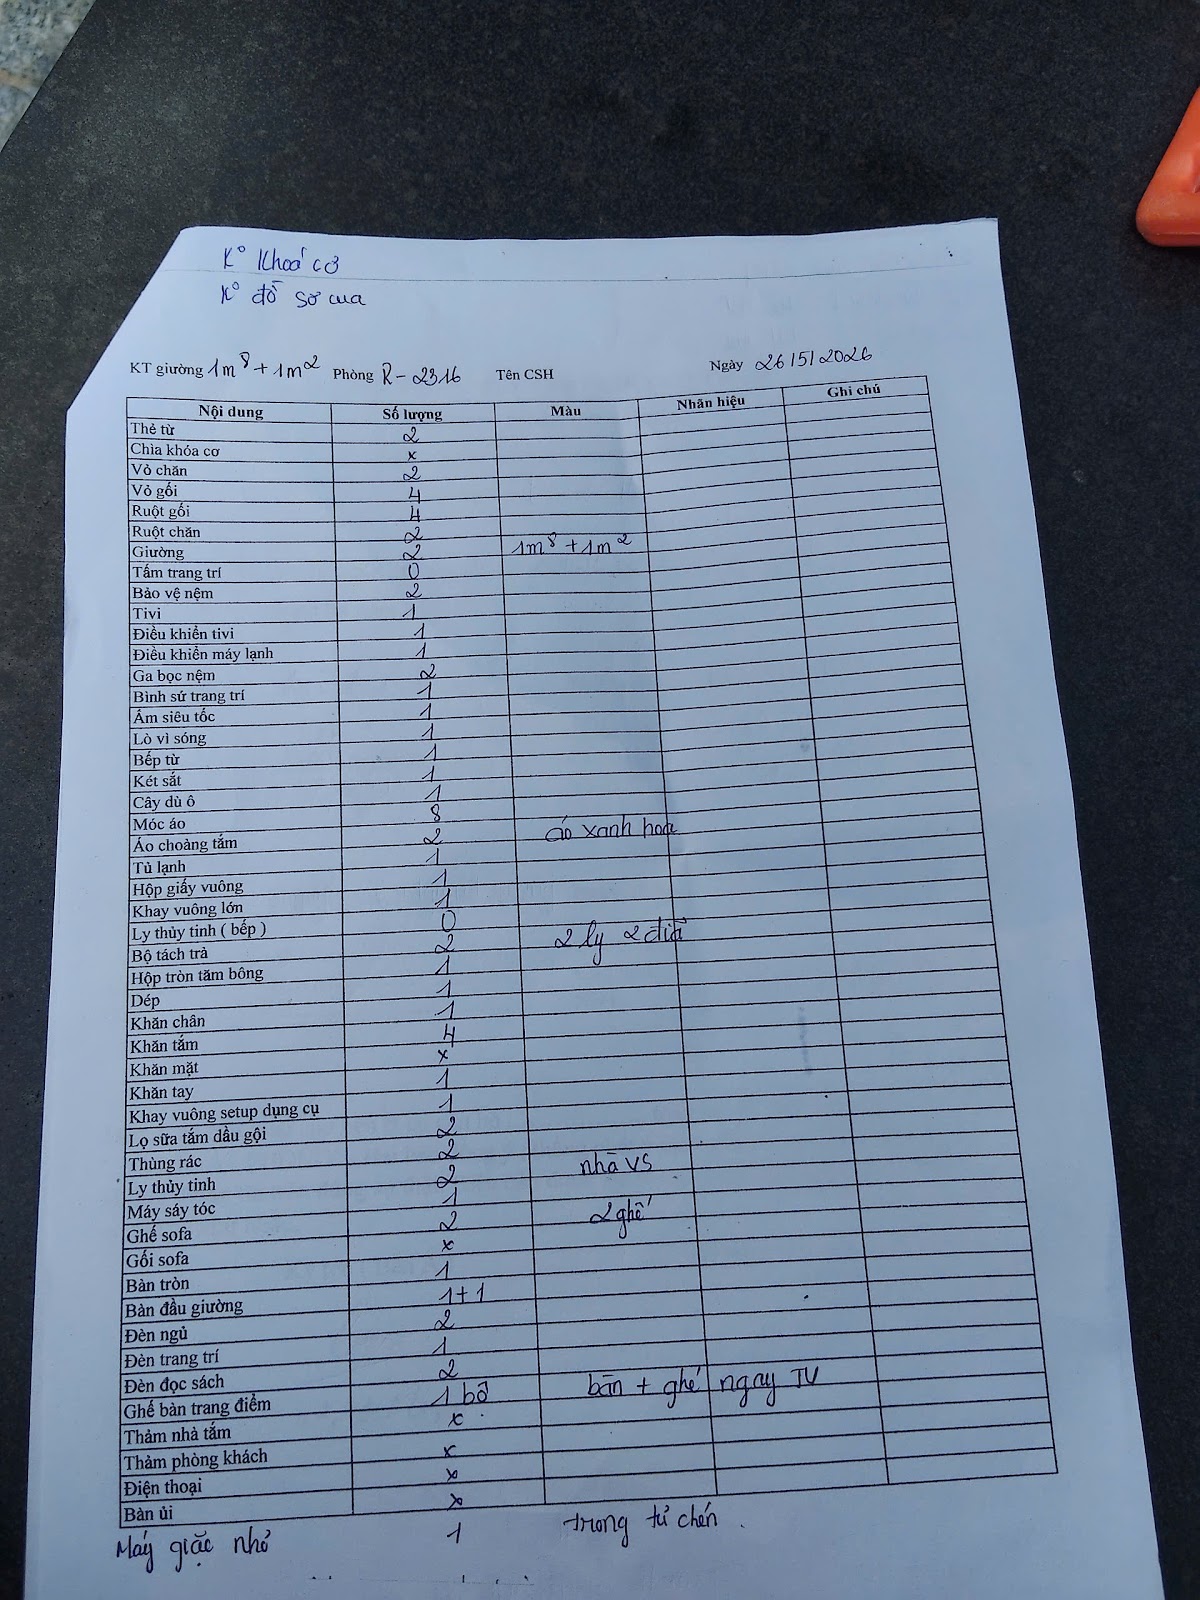 K° Khoá cơ
K° đồ sơ cua
KT giường 1m8 + 1m2 Phòng R-2316 Tên CSH Ngày 26/5/2026
Nội dung Số lượng Màu Nhãn hiệu Ghi chú
Thẻ từ 2
Chìa khóa cơ x
Vỏ chăn 2
Vỏ gối 4
Ruột gối 4
Ruột chăn 2
Giường 2 1m8 + 1m2
Tấm trang trí 0
Bảo vệ nệm 2
Tivi 1
Điều khiển tivi 1
Điều khiển máy lạnh 1
Ga bọc nệm 2
Bình sứ trang trí 1
Ấm siêu tốc 1
Lò vi sóng 1
Bếp từ 1
Két sắt 1
Cây dù ô 1
Móc áo 8
Áo choàng tắm 2 áo xanh hoa
Tủ lạnh 1
Hộp giấy vuông 1
Khay vuông lớn 1
Ly thủy tinh ( bếp ) 0
Bộ tách trà 2 2 ly 2 đĩa
Hộp tròn tăm bông 1
Dép 1
Khăn chân 1
Khăn tắm 4
Khăn mặt x
Khăn tay 1
Khay vuông setup dụng cụ 1
Lọ sữa tắm dầu gội 2
Thùng rác 2
Ly thủy tinh 2 nhà vs
Máy sáy tóc 1
Ghế sofa 2 2 ghế
Gối sofa x
Bàn tròn 1
Bàn đầu giường 1+1
Đèn ngủ 2
Đèn trang trí 1
Đèn đọc sách 2
Ghế bàn trang điểm 1 bộ bàn + ghế ngay TV
Thảm nhà tắm x
Thảm phòng khách x
Điện thoại x
Bàn ủi x
Máy giặc nhỏ 1 trong tủ chén.